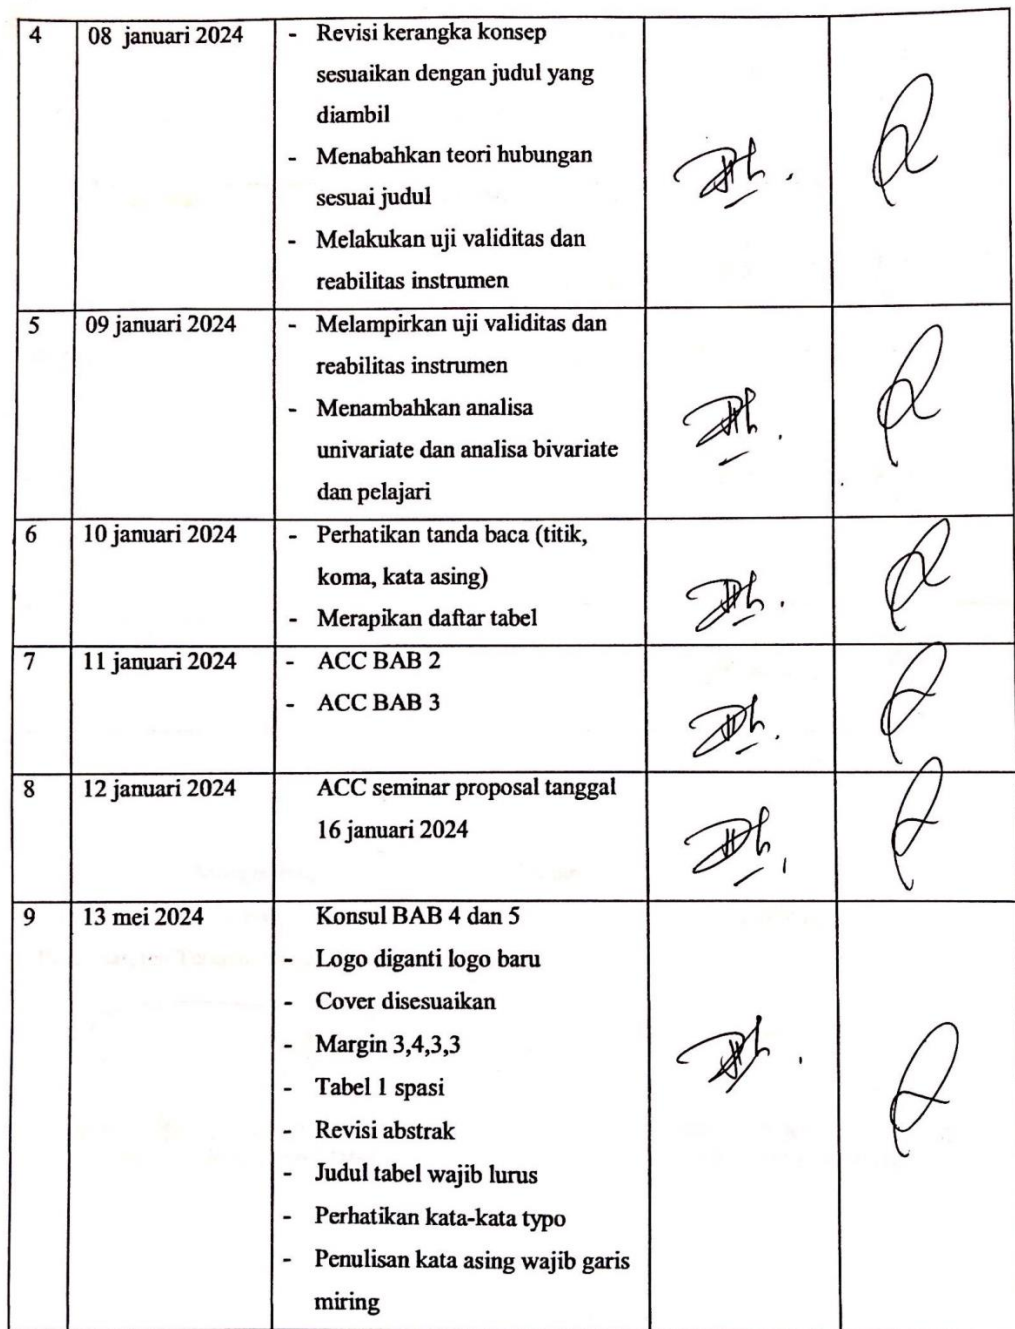 4 08 januari 2024 - Revisi kerangka konsep
sesuaikan dengan judul yang
diambil
- Menabahkan teori hubungan
sesuai judul
- Melakukan uji validitas dan
reabilitas instrumen
5 09 januari 2024 - Melampirkan uji validitas dan
reabilitas instrumen
- Menambahkan analisa
univariate dan analisa bivariate
dan pelajari
6 10 januari 2024 - Perhatikan tanda baca (titik,
koma, kata asing)
- Merapikan daftar tabel
7 11 januari 2024 - ACC BAB 2
- ACC BAB 3
8 12 januari 2024 ACC seminar proposal tanggal
16 januari 2024
9 13 mei 2024 Konsul BAB 4 dan 5
- Logo diganti logo baru
- Cover disesuaikan
- Margin 3,4,3,3
- Tabel 1 spasi
- Revisi abstrak
- Judul tabel wajib lurus
- Perhatikan kata-kata typo
- Penulisan kata asing wajib garis
miring